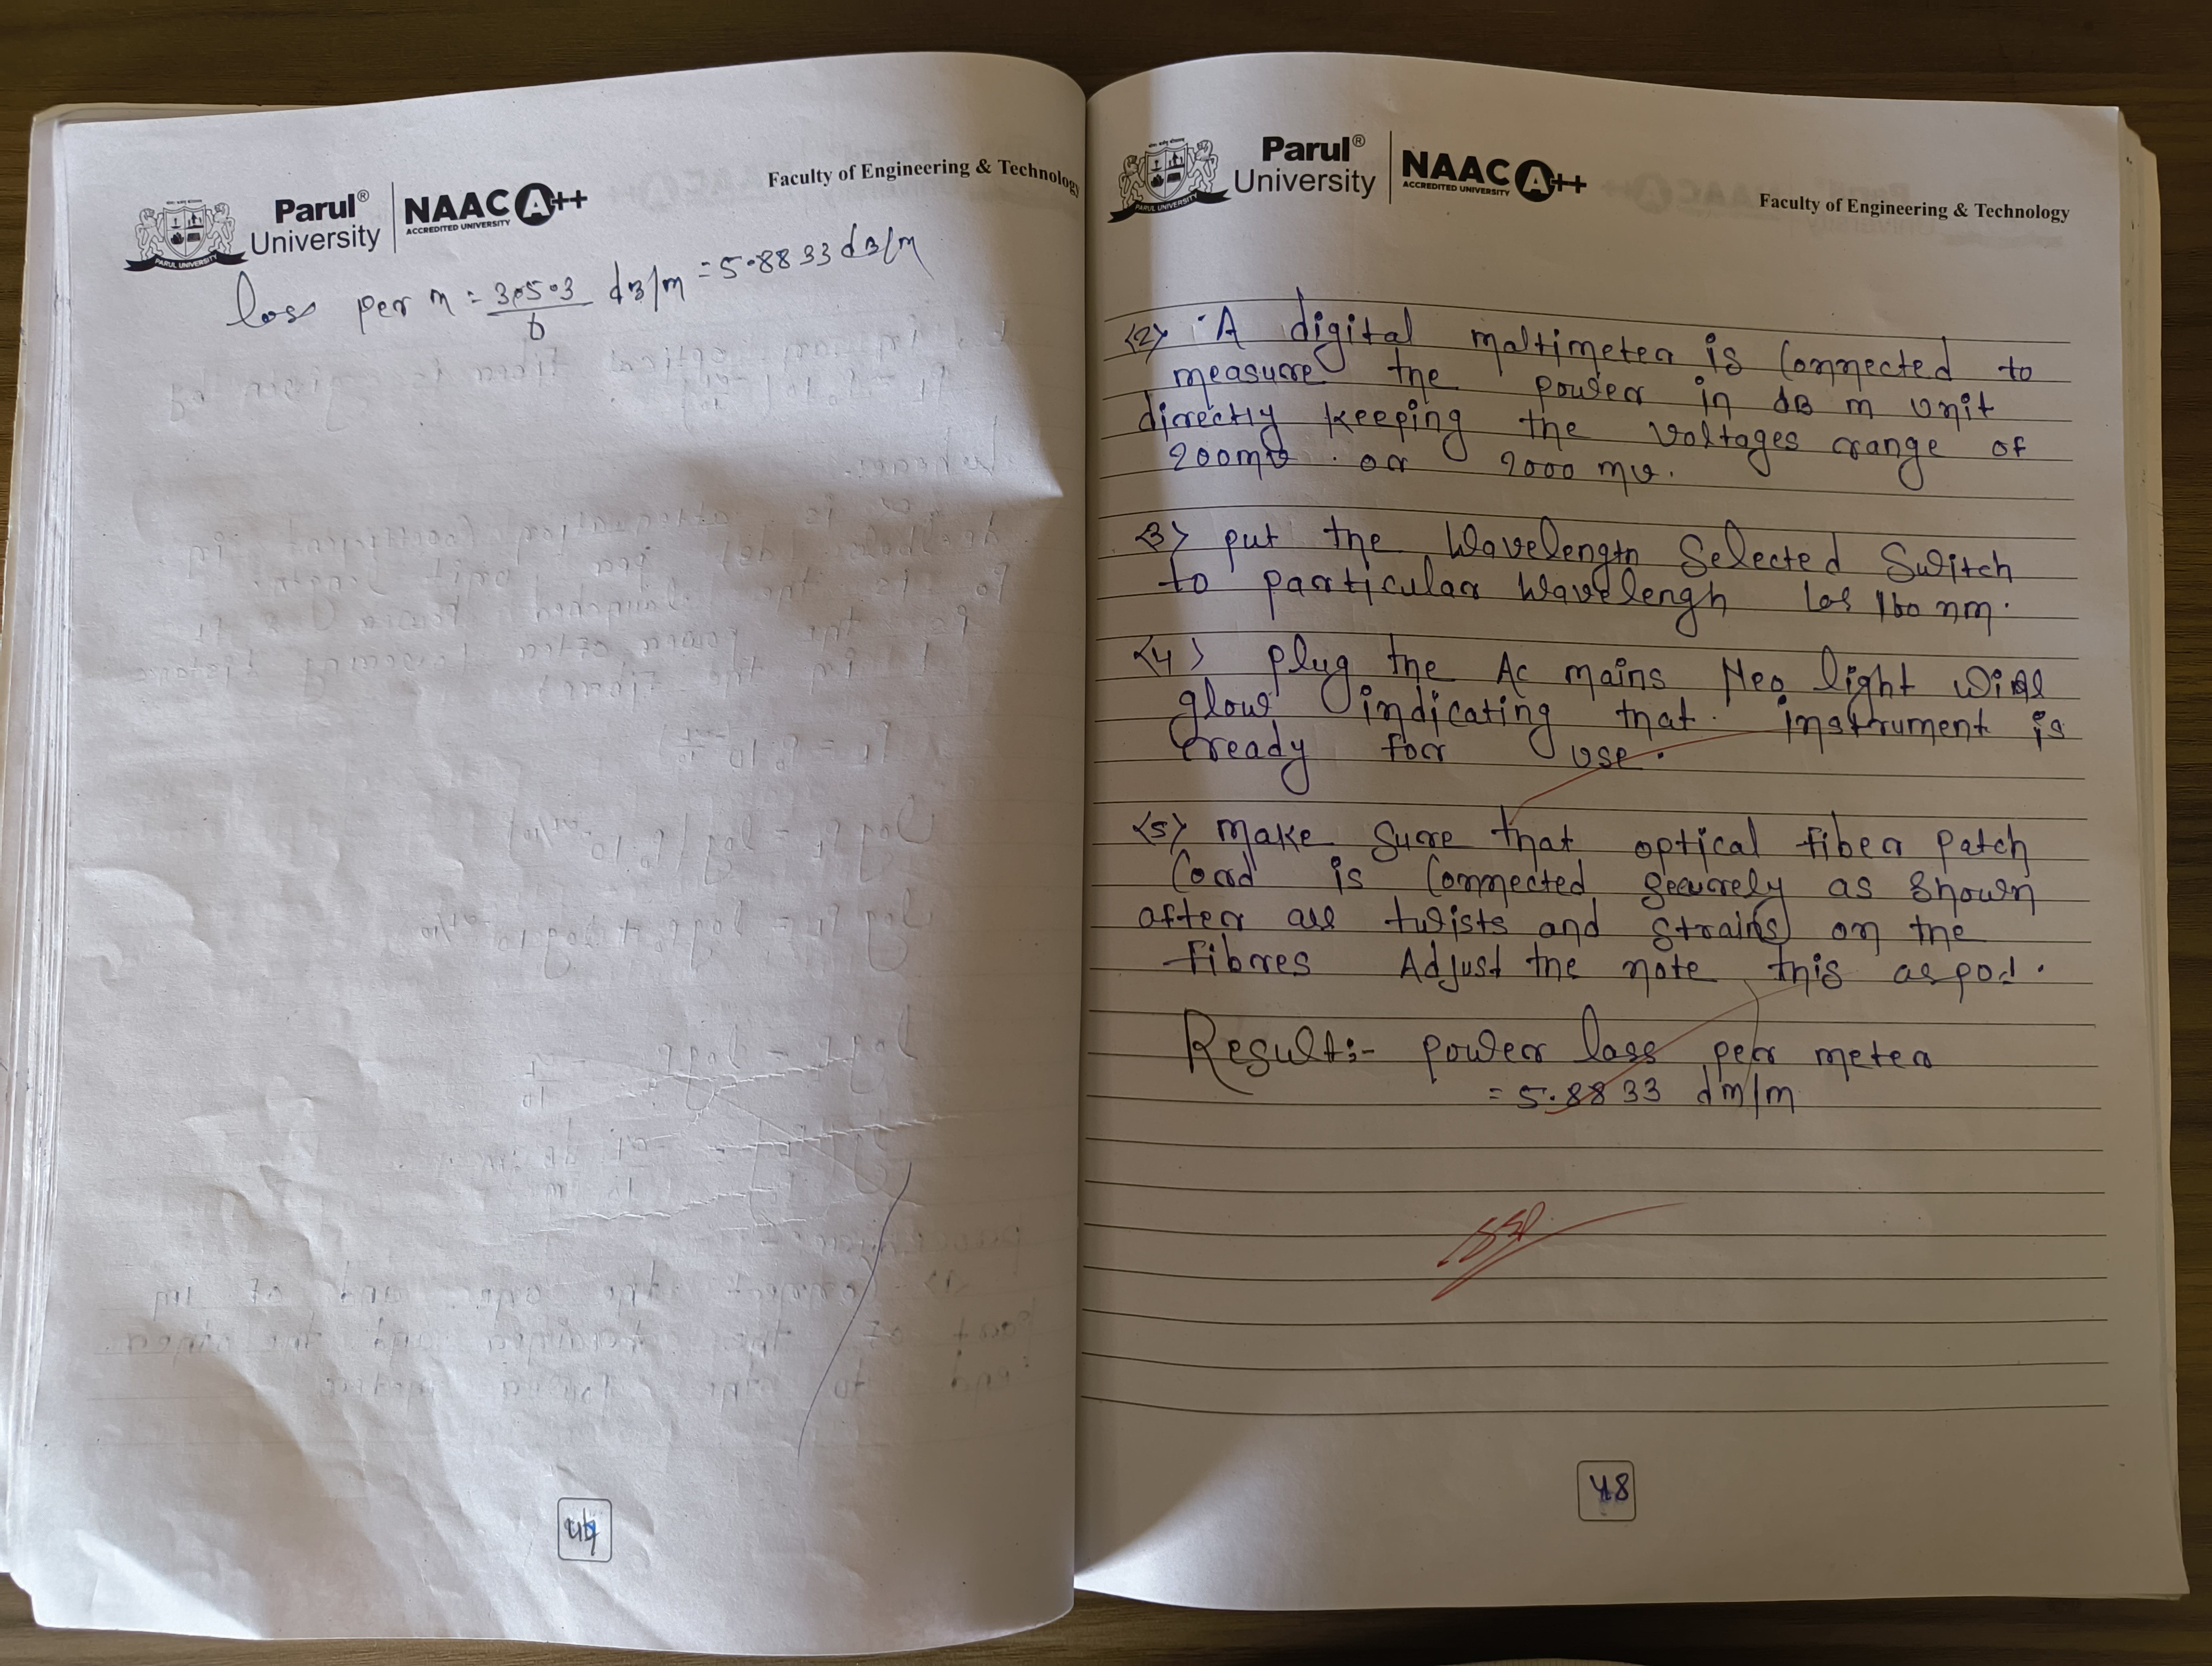 Parul® University
NAAC A++
ACCREDITED UNIVERSITY
PARUL UNIVERSITY
Faculty of Engineering & Technology
loss per m = 305.3 / 6 dB/m = 5.8833 dB/m
Parul® University
NAAC A++
ACCREDITED UNIVERSITY
PARUL UNIVERSITY
Faculty of Engineering & Technology
<2> A digital maltimeter is Connected to
measure the power in dB m unit
directly keeping the voltages range of
200mv or 2000 mv.
<3> put the Wavelength Selected Switch
to particular Wavelengh 160 nm.
<4> plug the Ac mains Neo light will
glow indicating that instrument is
ready for use.
<5> Make Sure that optical fiber patch
Cord is Connected securely as shown
after all twists and strains on the
fibres Adjust the note this
Result:- power loss per meter
= 5.8833 dm/m
48